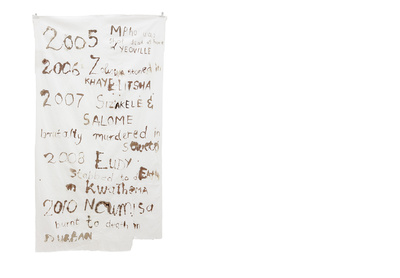 2005 MPho was
YEOVILLE
2006 Zoliswa stoned in
KHAYELITSHA
2007 SIZAKELE &
SALOME
brutally murdered in
SOWETO
2008 EUDY
Stabbed to
in KwaThema
2010 NOUMISA
burnt to death in
DURBAN